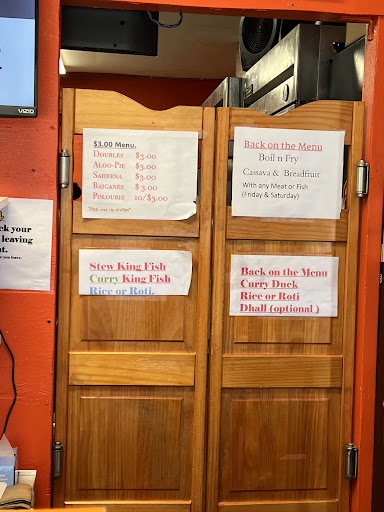 VIZIO
ck your
leaving
t.
$3.00 Menu.
DOUBLES $3.00
ALOO-PIE $3.00
SAHEENA $3.00
BAIGANEE $3.00
POLOURIE 10/$3.00
Back on the Menu
Boil n Fry
Cassava & Breadfruit
With any Meat or Fish
(Friday & Saturday)
Stew King Fish
Curry King Fish
Rice or Roti.
Back on the Menu
Curry Duck
Rice or Roti
Dhall (optional )